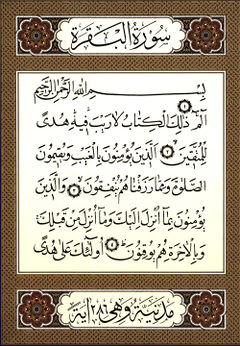 سورة البقرة
بسم الله الرحمن الرحيم
الم ذلك الكتاب لا ريب فيه هدى
للمتقين الذين يؤمنون بالغيب ويقيمون
الصلوة ومما رزقناهم ينفقون والذين
يؤمنون بما أنزل إليك وما أنزل من قبلك
وبالآخرة هم يوقنون أولئك على هدى
مدنية وهي ٢٨٦ آية